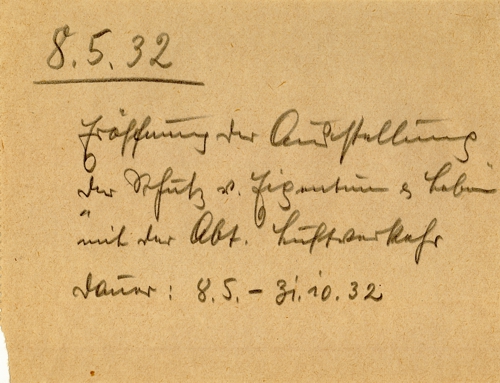 8.5.32
Eröffnung der Ausstellung
"Der Schutz v. Eigentum & Leben"
mit der Abt. Luftverkehr
Dauer: 8.5. - 31.10.32